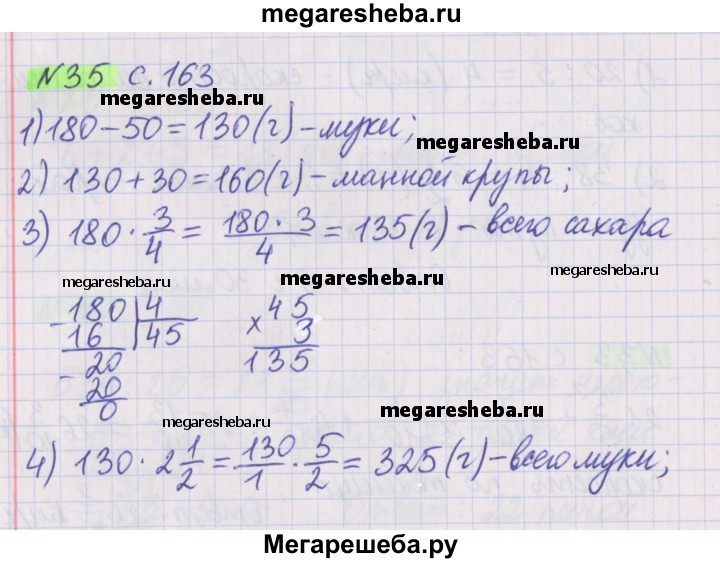 megaresheba.ru
№35 с. 163
megaresheba.ru
1) 180 - 50 = 130 (г) - муки;
megaresheba.ru
2) 130 + 30 = 160 (г) - манной крупы;
3) 180 · 3/4 = 180 · 3/4 = 135 (г) - всего сахара
megaresheba.ru
megaresheba.ru
- 180 | 4
16 | 45
- 20
20
0
× 45
3
135
megaresheba.ru
megaresheba.ru
4) 130 · 2 1/2 = 130/1 · 5/2 = 325 (г) - всего муки;
megaresheba.ru
megaresheba.ru
Мегарешеба.ру